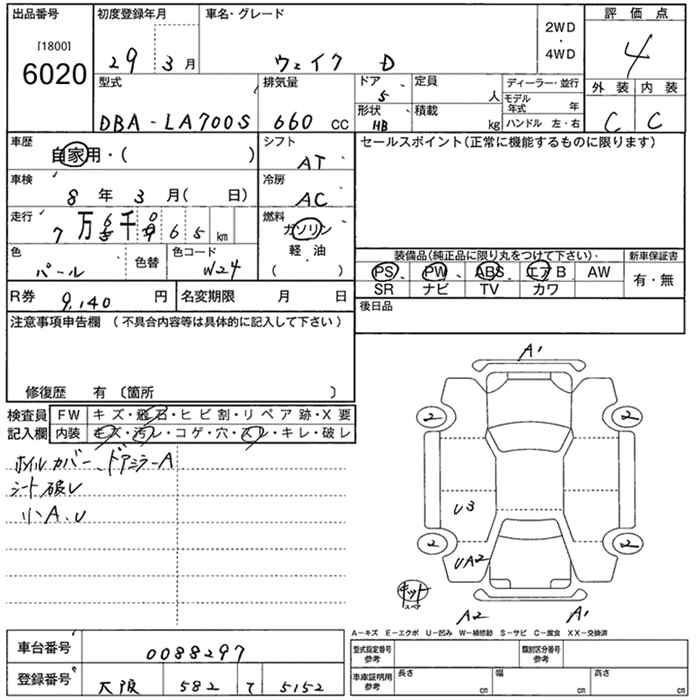 出品番号 初度登録年月 車名・グレード 2WD ・ 4WD 評価点
[1800]
6020 29 3月 ウェイク D 4
型式 排気量 ドア 定員 人 ディーラー・並行 外装 内装
5 モデル年式 年
DBA-LA700S 660 cc 形状 HB 積載 kg ハンドル 左・右 C C
車歴 自家用・( ) シフト AT セールスポイント(正常に機能するものに限ります)
車検 8年 3月( 日) 冷房 AC
走行 7万 6千 065 km 燃料 ガソリン
軽・油
( )
色 パール 色替 色コード W24 装備品(純正品に限り丸をつけて下さい) 新車保証書
PS PW ABS エアB AW 有・無
SR ナビ TV カワ
R券 9,140円 名変期限 月 日 後日品
注意事項申告欄(不具合内容等は具体的に記入して下さい)
修復歴 有〔箇所 〕
検査員 FW キズ・飛石・ヒビ割・リペア跡・X要
記入欄 内装 キズ・汚レ・コゲ・穴・スレ・キレ・破レ
ホイルカバー、ドアミラーA
シート破レ
小A、U
A1
2 2
U3
2 2
UA2
キット
A2 A1
A−キズ E−エクボ U−凹み W−補修跡 S−サビ C−腐食 XX−交換済
車台番号 0088297 型式指定番号 参考 類別区分番号 参考
登録番号 大阪 582 て 5152 車庫証明用 参考 長さ cm 幅 cm 高さ cm